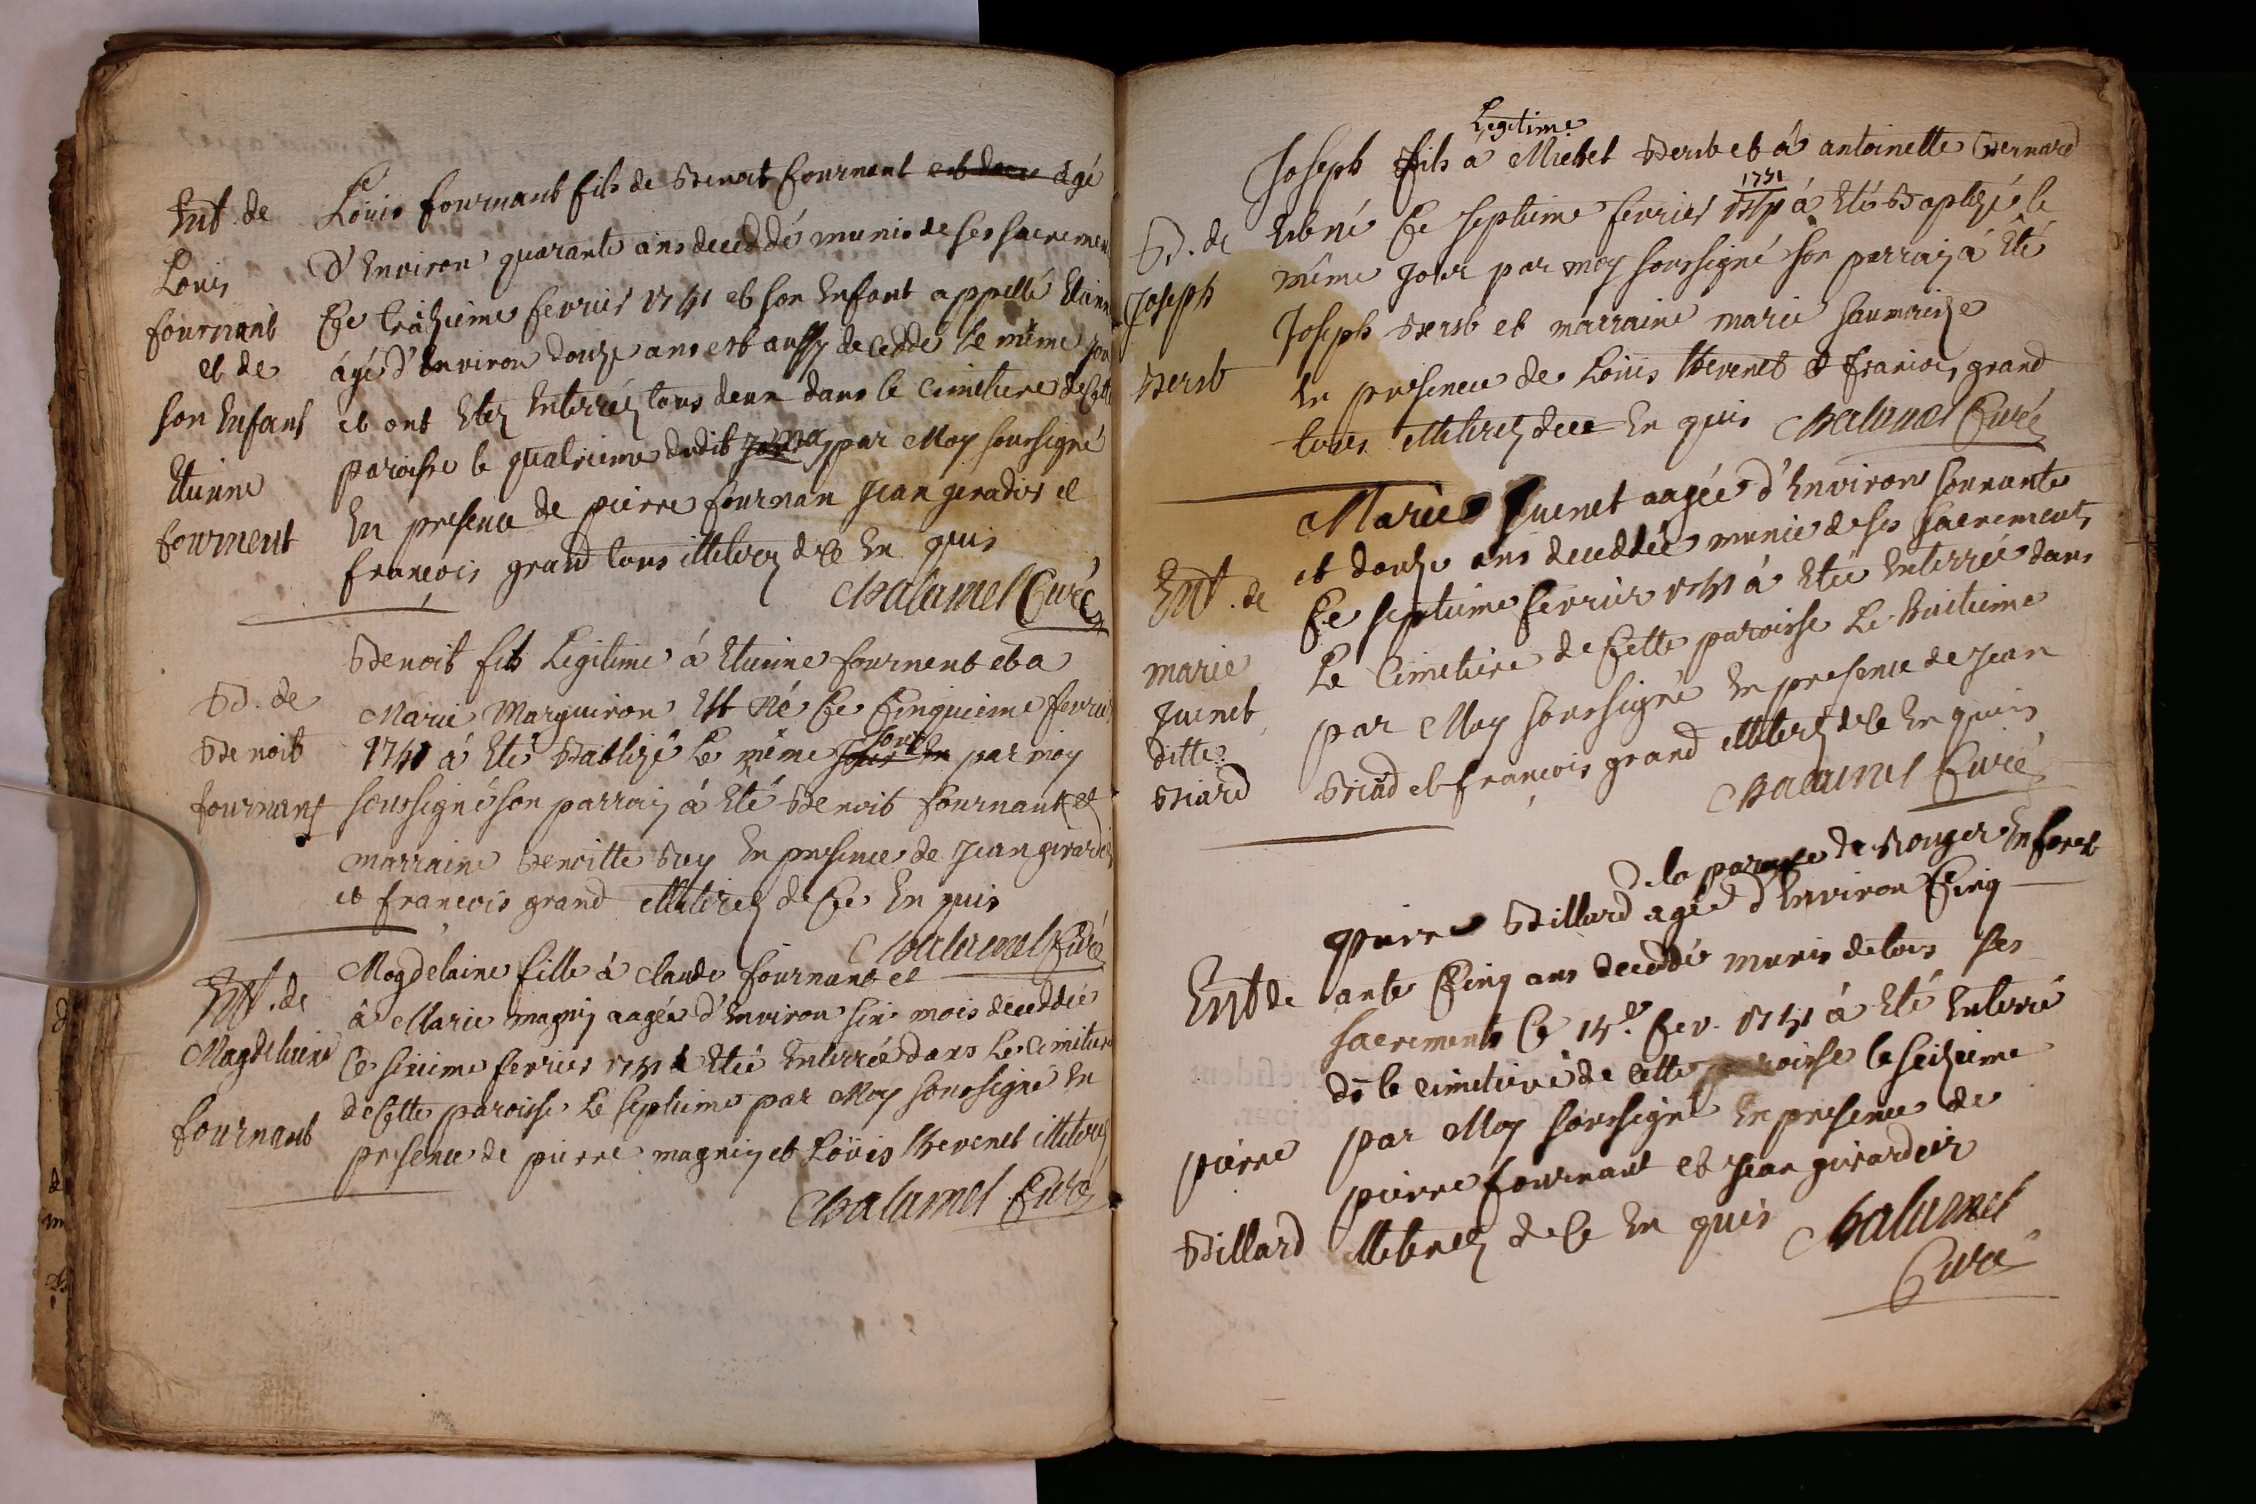 Ent. de
Louis
fournant
et de
son Enfant
Etienne
fournent
Loüis fournant fils de Benoit fournant agé
d'Environ quarante ans deceddé munis de ses sacremen
Ce troiszieme fevrier 1741 et son Enfant appellé Etienne
âgé d'Environ douze ans est aussy decedde le même jou
et ont Etez Enterréz tous deux dans le cimetiere de Cette
paroisse le quatrieme dudit par Moy soussigné
En presence de pierre fournan Jean geradin et
françois grand tous illiterez de ce En quis
Chalamel Curé
B. de
Benoit
fournant
Benoit fils Legitime à Etienne fournent et a
Marie Marguiron Est né Ce Cinquieme fevrier
1741 à Eté Babtizé le même jour par moy
soussigné son parrain à Eté Benoit fournant et
marraine Benoitte Rey En presence de Jean girardin
et françois grand illiterez de Ce En quis
Chalamel Curé
Ent. de
Magdelaine
fournant
Magdelaine fille à Claude fournant et
à Marie magnin aagée d'Environ six mois deceddée
Ce sixieme fevrier 1741 à Eté Enterrée dans Le cimitiere
de Cette paroisse Le septieme par Moy soussigné En
presence de pierre magnin et Loüis thevenet illiterez
Chalamel Curé
B. de
Joseph
Legitime
Joseph fils à Michel et à antoinette Bernard
Est né Ce septieme fevrier 1741 à Eté Baptizé le
même Jour par moy soussigné son parrain à Eté
Joseph et marraine marie
En presence de Loüis thevenet & françois grand
tous illiterez de ce En quis Chalamel Curé
Ent. de
marie
Juenet
ditte
Biard
Marie Juenet aagée d'Environ soixante
et douze ans deceddée munie de ses sacrements
Ce septieme fevrier 1741 à Etée Enterrée dans
Le Cimetiere de Cette paroisse Le huitieme
par Moy soussigné En presence de Jean
Biard et françois grand illiterez de Ce En quis
Chalamel Curé
Ent de
pierre
Billard
de la paroisse de En forest
pierre Billard agée d'Environ Cinq
ante Cinq ans deceddé munis de tous ses
sacrements Ce 15.e fev. 1741 à Eté Enterré
ds le cimetiere de Cette paroisse le seizieme
par Moy soussigné En presence de
pierre fournant et Jean girardin
illiterez de Ce En quis Chalamel
Curé